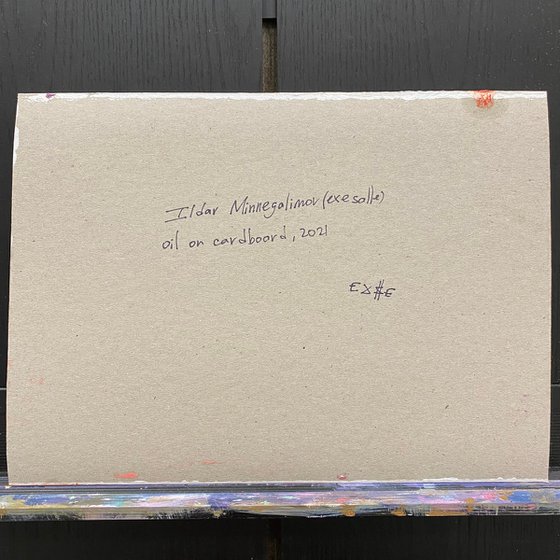 Ildar Minnegalimov (exesalle)
oil on cardboard, 2021
EX#E